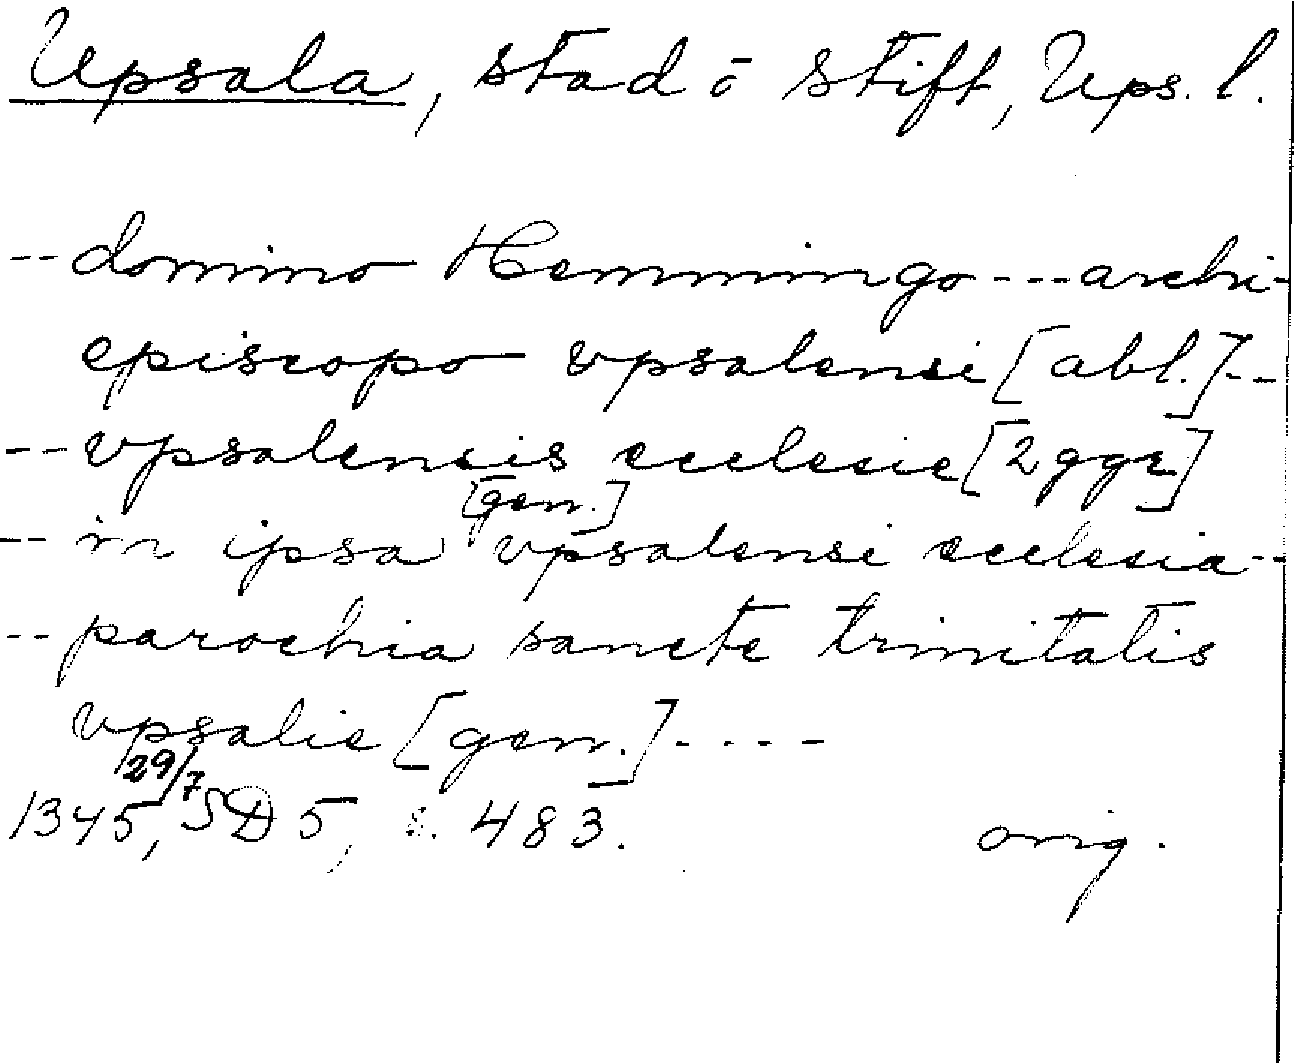 Upsala, stad ō stift, Ups. l.
-- domino Hemmingo --- archi-
episcopo vpsalensi [abl.] --
-- vpsalensis ecclesie [2 ggr]
[gen.]
-- in ipsa vpsalensi ecclesia --
-- parochia sancte trinitatis
vpsalie [gen.] ----
29/7
1345, SD 5, s. 483. orig.